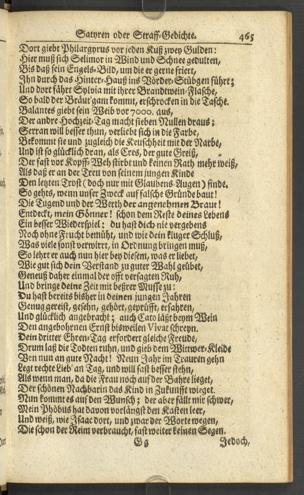 Satyren oder Straff-Gedichte. 465
Dort giebt Philargyrus vor jeden Kuß zwey Gulden:
Hier muß sich Selimor in Wind und Schnee gedulten,
Bis daß sein Engels-Bild, um die er gerne friert,
Ihn durch das Hinter-Hauß ins Vorder-Stübgen führt;
Und dort fährt Sylvia mit ihrer Brandtwein-Flasche,
So bald der Bräut'gam kommt, erschrocken in die Tasche.
Balantes giebt sein Weib vor 7000. aus,
Der andre Hochzeit-Tag macht sieben Nullen draus;
Serran will besser thun, verliebt sich in die Farbe,
Bekommt sie und zugleich die Keuschheit mit der Narbe,
Und ist so glücklich dran, als Cres, der gute Greiß,
Der fast vor Kopff-Weh stirbt und keinen Rath mehr weiß,
Als daß er an der Treu von seinem jungen Kinde
Den letzten Trost (doch nur mit Glaubens-Augen) finde.
So gehts, wenn unser Zweck auf falsche Gründe baut!
Die Tugend und der Werth der angenehmen Braut!
Entdeckt, mein Gönner! schon dem Reste deines Lebens
Ein besser Wiederspiel: du hast dich nie vergebens
Noch ohne Frucht bemüht, und wie dein kluger Schluß,
Was viele sonst verwirrt, in Ordnung bringen muß,
So lehrt er auch nun hier bey diesem, was er liebet,
Wie gut sich dein Verstand zu guter Wahl geübet,
Geneuß daher einmal der offt versagten Ruh,
Und bringe deine Zeit mit beßrer Musse zu:
Du hast bereits bisher in deinen jungen Jahren
Genug gereist, gesehn, gehört, geprüfft, erfahren,
Und glücklich angebracht; auch Cato läst beym Wein
Den angebohrnen Ernst bisweilen Vivat schreyn.
Dein dritter Ehren-Tag erfordert gleiche Freude,
Drum laß die Todten ruhn, und gieb dem Wittwer-Kleide
Von nun an gute Nacht! Neun Jahr im Trauren gehn
Legt rechte Lieb' an Tag, und will fast besser stehn,
Als wenn man, da die Frau noch auf der Bahre lieget,
Der schönen Nachbarin das Kind in Zukunft wieget.
Nun kommt es auf den Wunsch; der aber fällt mir schwer,
Mein Phöbus hat davon vorlängst den Kasten leer,
Und weiß, wie Isaac dort, und zwar der Worte wegen,
Die schon der Reim verbraucht, fast weiter keinen Segen.
Gg Jedoch,